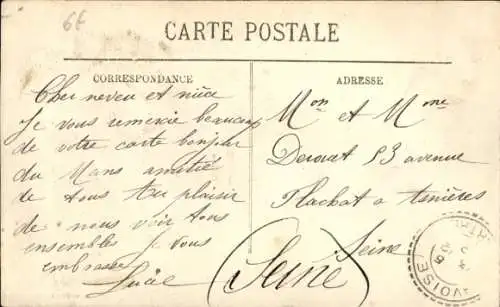 6€
CARTE POSTALE
CORRESPONDANCE
ADRESSE
Cher neveu et nièce
Je vous remercie beaucoup
de votre carte bonjour
du Mans amitié
de tous plaisir
de nous voir tous
ensembles je vous
embrasse
Lucie
Mon et Mme
Derouet 53 avenue
Flachat a Asnières
Seine
(Seine)
AVOISE